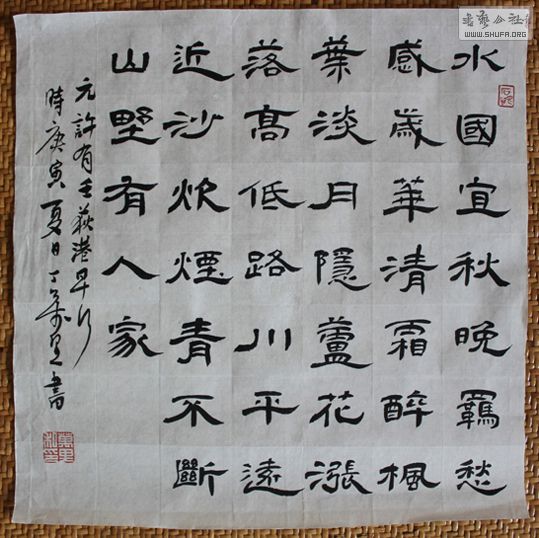 水國宜秋晚羈愁
感歲華清霜醉楓
葉淡月隱蘆花漲
落高低路川平遠
近沙炊煙青不斷
山野有人家
元許有壬荻港早行
時庚寅夏日丁萬里書
WWW.SHUFA.ORG